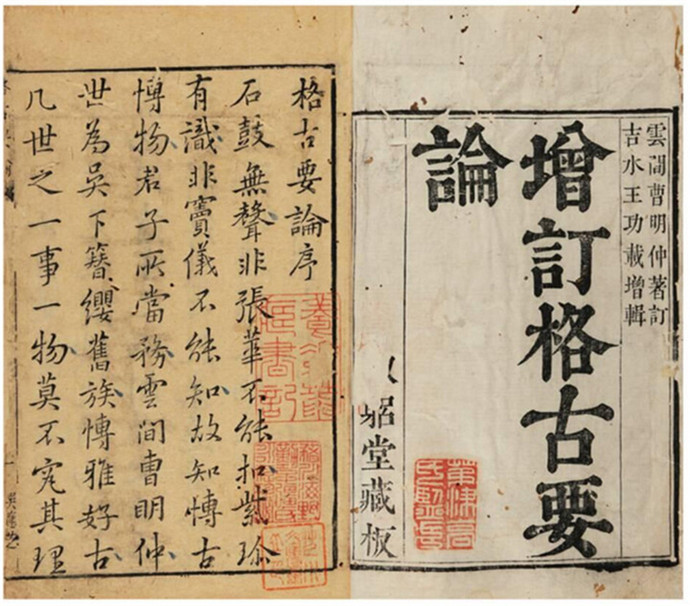 雲間曹明仲著訂
吉水王功載增輯
增訂格古要
論
堂藏板
格古要論序
石鼓無聲非張華不能扣紫珍
有識非竇儀不能知故知博古
博物君子所當務雲間曹明仲
世為吳下簪纓舊族博雅好古
凡世之一事一物莫不究其理